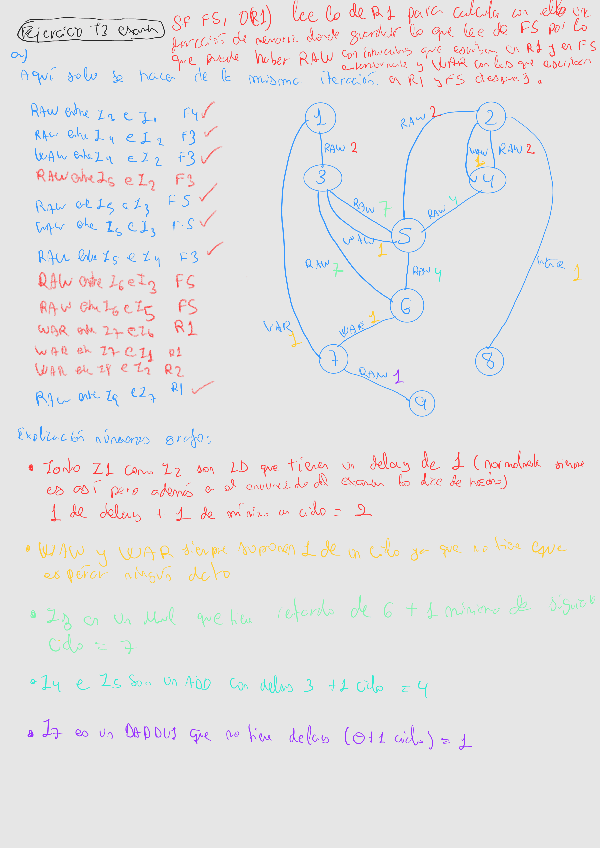 Ejercicio T3 examen
SF F5, 0(R1) lee lo de R1 para calcular con ello un
dirección de memoria donde guardar lo que lee de F5 por lo
que puede haber RAW con instrucciones que escriban en R1 y en F5
anteriormente y WAR con las que escriban
en R1 y F5 despues.
a)
Aquí solo se hacen de la misma iteración
RAW entre I3 e I1 F4 ✓
RAW entre I4 e I2 F3 ✓
WAW entre I4 e I2 F3 ✓
RAW entre I5 e I2 F3
RAW entre I5 e I3 F5 ✓
WAW entre I5 e I3 F5 ✓
RAW entre I5 e I4 F3 ✓
RAW entre I6 e I3 F5
RAW entre I6 e I5 F5
WAR entre I7 e I6 R1
WAR entre I7 e I1 R1
WAR entre I8 e I2 R2
RAW entre I9 e I7 R1 ✓
1
2
RAW 2
RAW 2
WAW 1
RAW 2
3
4
RAW 7
WAW 1
RAW 4
5
RAW 7
RAW 4
WAR 1
6
WAR 1
WAR 1
7
8
RAW 1
9
Explicación números grafo:
• Tanto I1 como I2 son LD que tienen un delay de 1 (normalmente siempre
es así pero además en el enunciado de examen lo dice de nuevo)
1 de delay + 1 de mínimo un ciclo = 2
• WAW y WAR siempre suponen 1 de un ciclo ya que no tien que
esperar ningún dato
• I3 es un Mul que tiene retardo de 6 + 1 mínimo de siguiente
ciclo = 7
• I4 e I5 son un ADD con delay 3 + 1 ciclo = 4
• I7 es un DADDUI que no tiene delay (0+1 ciclo) = 1